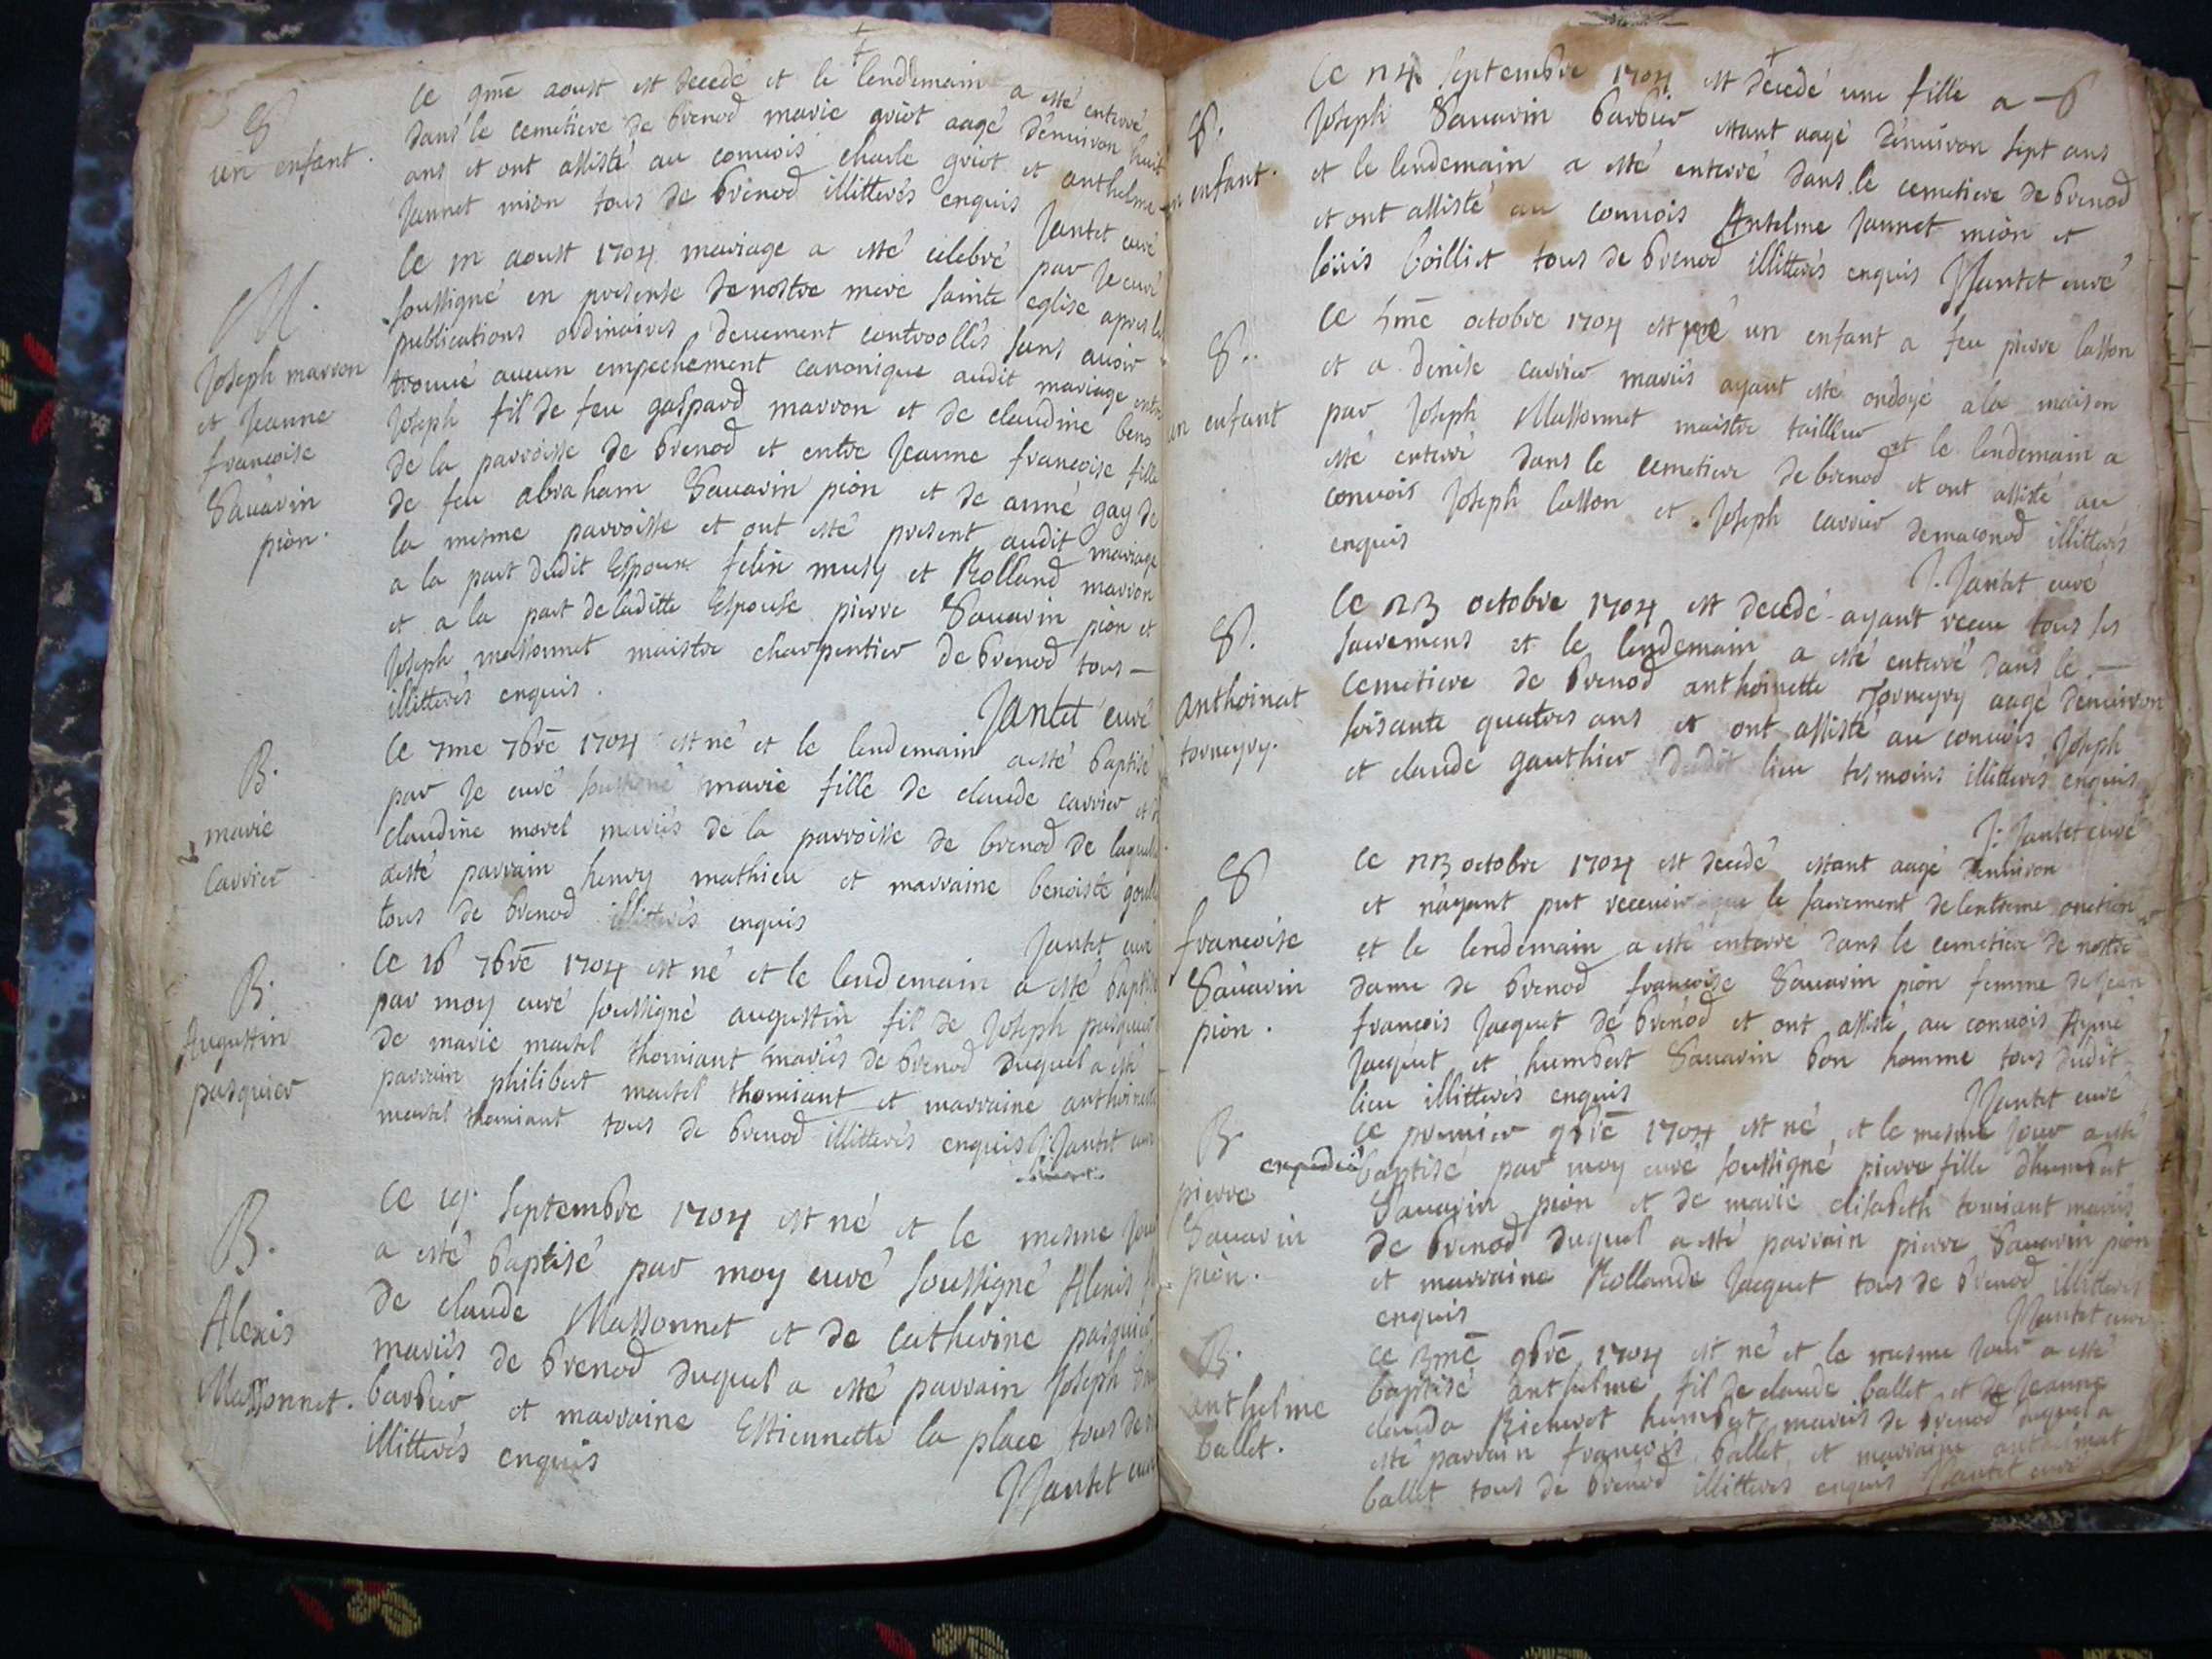 S
un enfant.
Ce 9me aoust est decedé et le lendemain a esté enterré
dans le cemetiere de brenod marie griot aagé denuiron huit
ans et ont assisté au conuois charle griot et anthelme
Jannet mion tous de brenod illitterés enquis
Jantet curé
M.
Joseph marron
et Jeanne
francoise
Sauarin
pion.
Ce aoust 1704 mariage a esté celebré par Je curé
soussigné en presense de nostre mere sainte eglise apres les
publications ordinaires deuement controollés sans auoir
trouué aucun empechement canonique audit mariage entre
Joseph fil de feu gaspard marron et de claudine bens
de la parroisse de brenod et entre Jeanne francoise fille
de feu abraham Sauarin pion et de anne gay de
la mesme parroisse et ont esté present audit mariage
a la part dudit Espoux felin musy et Rolland marron
et a la part de laditte Espouse pierre Sauarin pion et
Joseph massonnet maistre charpentier de brenod tous
illitterés enquis.
Jantet curé
B.
marie
Carrier
Ce 7me 7bre 1704 est né et le lendemain a esté baptisé
par Je curé soussigné marie fille de claude carrier et d
claudine morel mariés de la parroisse de brenod de laquelle
a esté parrain henry mathieu et marraine benoiste
tous de brenod illitterés enquis
Jantet cur
B.
Augustin
pasquier
Ce 16 7bre 1704 est né et le lendemain a esté baptisé
par moy curé soussigné augustin fil de Joseph pasquier
de marie martel thomiant mariés de brenod duquel a esté
parrain philibert martel thomiant et marraine anthoinette
martel thomiant tous de brenod illitterés enquis J. Jantet cur
B.
Alexis
Massonnet.
Ce 19. Septembre 1704 est né et le mesme Jour
a esté baptisé par moy curé soussigné Alexis
de claude Massonnet et de catherine pasquier
mariés de brenod duquel a esté parrain Joseph
barbier et marraine Estiennette la place tous de
illitterés enquis
J Jantet cur
S.
un enfant.
Ce 24 Septembre 1704 est decedé une fille a
Joseph Sauarin barbier estant aagé denuiron sept ans
et le lendemain a esté enterré dans le cemetiere de brenod
et ont assisté au conuois Antelme Jannet mion et
loüis boilliet tous de brenod illitterés enquis J Jantet curé
S.
un enfant
Ce octobre 1704 est né un enfant a feu pierre lasson
et a denise carrier mariés ayant esté ondoyé a la maison
par Joseph Massonnet maistre tailleur et le lendemain a
esté enterré dans le cemetiere de brenod et ont assisté au
conuois Joseph lasson et Joseph carrier demaconod illitterés
enquis
J. Jantet curé
S.
anthoinat
torneyry.
Ce 23 octobre 1704 est decedé ayant receu tous ses
sacremens et le lendemain a esté enterré dans le
Cemetiere de brenod anthoinette Torneyry aagé denuiron
soisante quatres ans et ont assisté au conuois Joseph
et claude gauthier dudit lieu tesmoins illitterés enquis
J. Jantet curé
S
francoise
Sauarin
pion.
Ce 23 octobre 1704 est decedé estant aagé denuiron
et n'ayant put receuoir que le sacrement de lextreme onction
et le lendemain a esté enterré dans le cemetiere de nostre
dame de brenod francoise Sauarin pion femme de Jean
francois Jacquet de brenod et ont assisté au conuois Aymé
Jacquet et humbert Sauarin bon homme tous dudit
lieu illitterés enquis
J Jantet curé
B
pierre
Sauarin
pion.
Ce premier 9bre 1704 est né et le mesme Jour a esté
baptisé par moy curé soussigné pierre fille dhumbert
Sauarin pion et de marie elisabeth tomiant mariés
de brenod duquel a esté parrain pierre Sauarin pion
et marraine Rollande Jacquet tous de brenod illitterés
enquis
J Jantet curé
B.
anthelme
ballet.
Ce 3me 9bre 1704 est né et le mesme Jour a esté
baptisé anthelme fil de claude ballet et de Jeanne
clauda Richerot humbert mariés de brenod duquel a
esté parrain francois ballet et marraine
ballet tous de brenod illitterés enquis Jantet curé